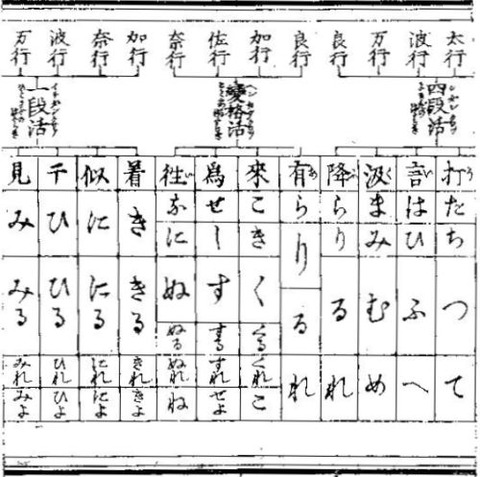 太行
波行
万行
良行
良行
加行
佐行
奈行
加行
奈行
波行
万行
四段活
變格活
一段活
打 た ち つ て
言 は ひ ふ へ
汲 ま み む め
降 ら り る れ
有 ら り る れ
來 こ き く くる くれ こ
爲 せ し す する すれ せよ
往 な に ぬ ぬる ぬれ ね
着 き きる きれ きよ
似 に にる にれ によ
干 ひ ひる ひれ ひよ
見 み みる みれ みよ